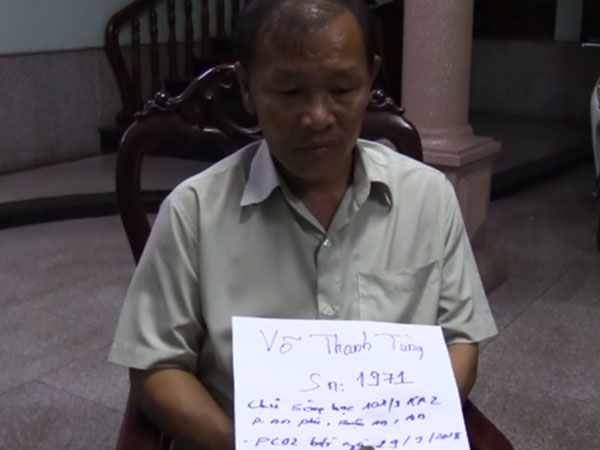 Võ Thanh Tùng
Sn: 1971
Chủ sòng bạc 108/3 KP2
P. An phú, Thuận An,
- PC02 bắt ngày 29/9/2018